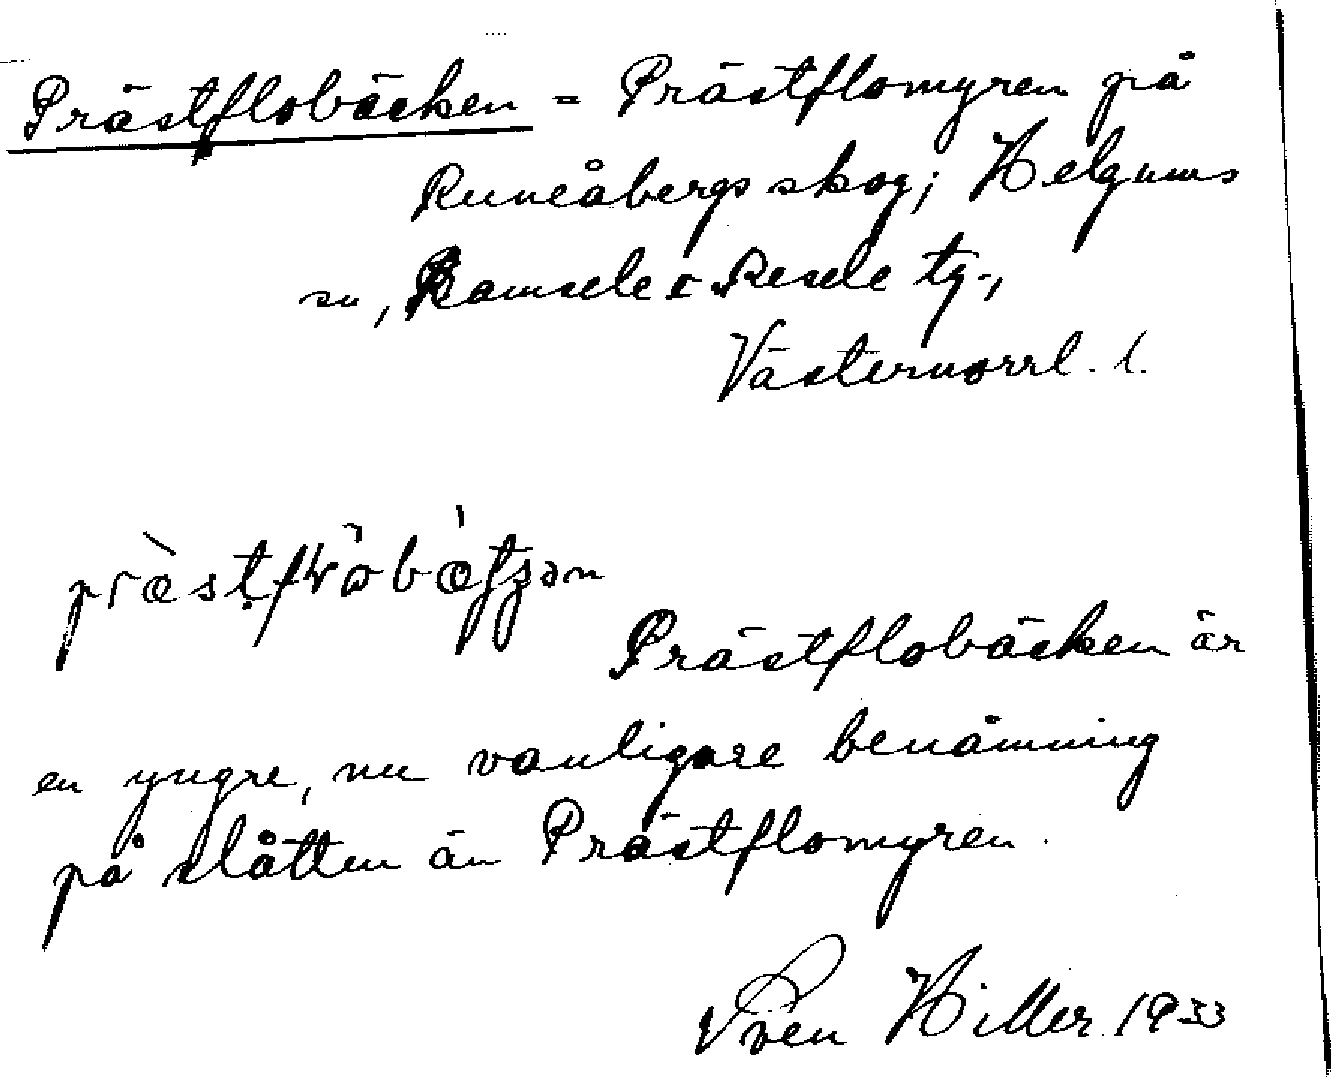 Prästflobäcken = Prästflomyren på
Runeåbergs skog; Helgums
sn, Ramsele o. Resele tg.,
Västernorrl. l.
Prästflobäcken är
en yngre, nu vanligare benämning
på slåtten än Prästflomyren.
Sven Hiller 1933